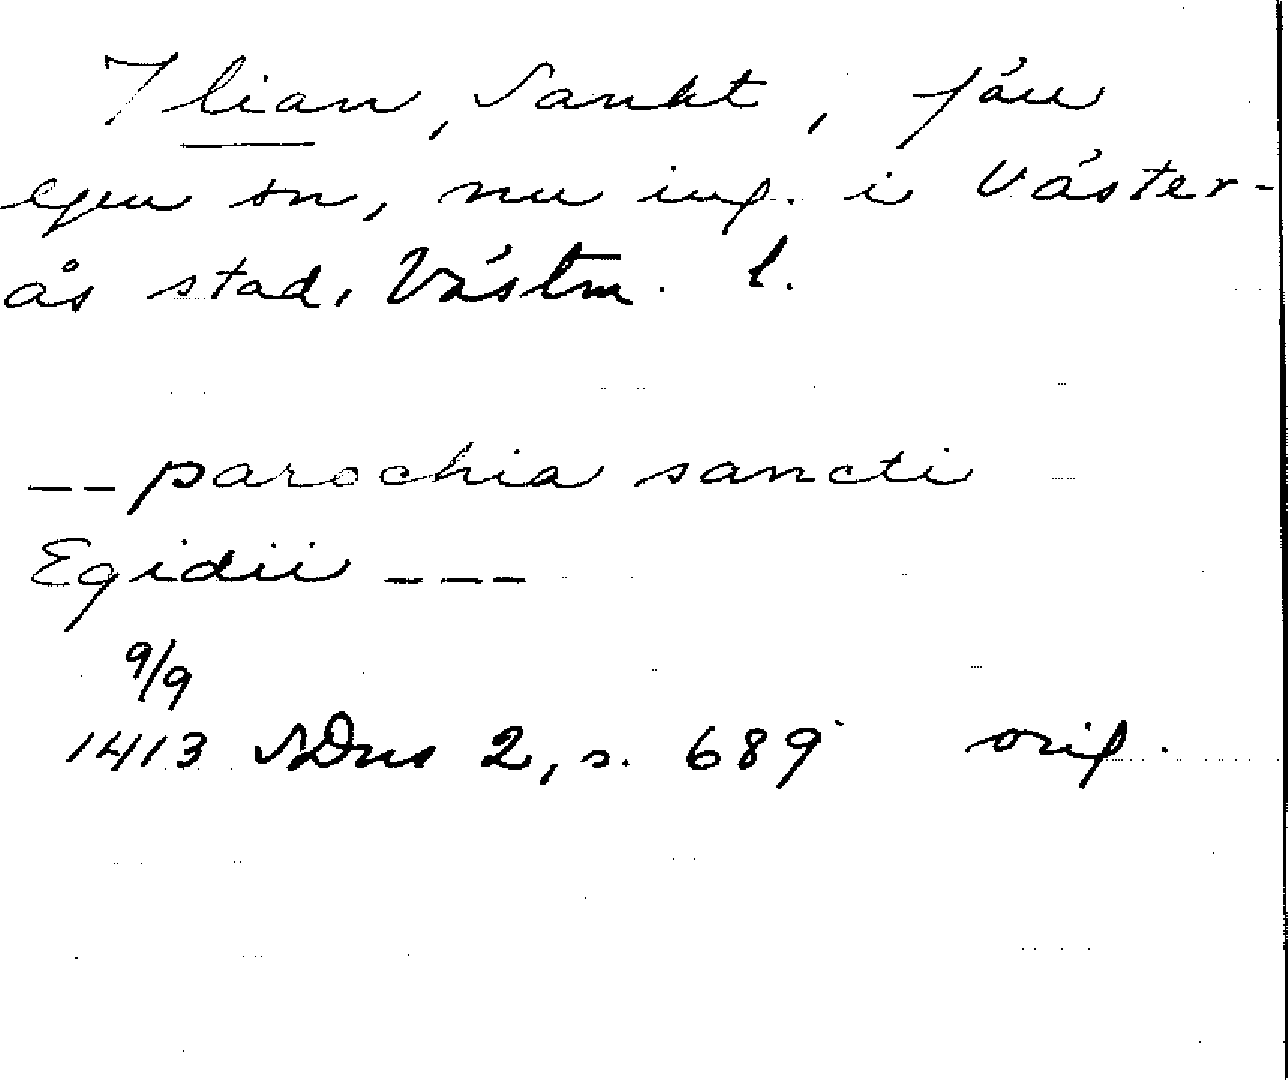 Ilian, Sankt, förr
egen sn, nu ing. i Väster-
ås stad, Västm. l.
-- parochia sancti
Egidii ---
9/9
1413 SDns 2, s. 689 orig.